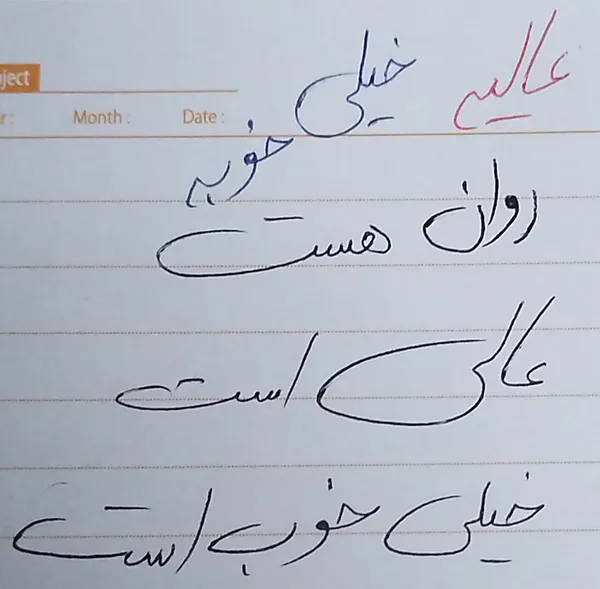 عالیه خیلی
خوبه
ject
r: Month: Date:
روان هست
عالی است
خیلی خوب است